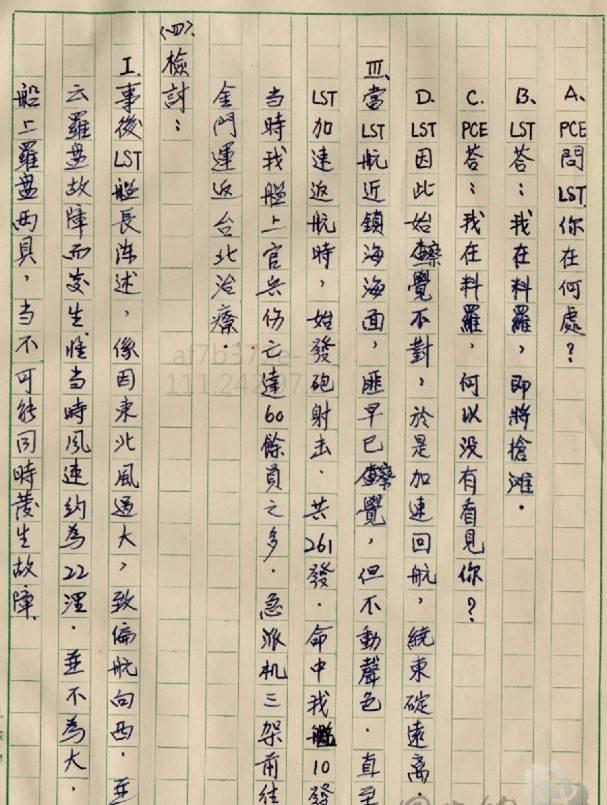 A、PCE問LST你在何處？
B、LST答：我在料羅，即將搶灘。
C、PCE答：我在料羅，何以没有看見你？
D、LST因此始察覺不對，於是加速回航，繞東碇遠離．
Ⅲ、當LST航近鎖海海面，匪早已察覺，但不動聲色．直至
LST加速返航時，始發砲射击．共261發．命中我艦10發
当時我艦上官兵伤亡達60餘員之多．急派机三架前往
金門運返台北治療．
〈四〉、檢討：
I、事後LST艦長陈述，係因東北風過大，致偏航向西．並
云羅盘故障而发生惟当時風速約為22浬．並不為大，
船上羅盘两具，当不可能同時發生故障．